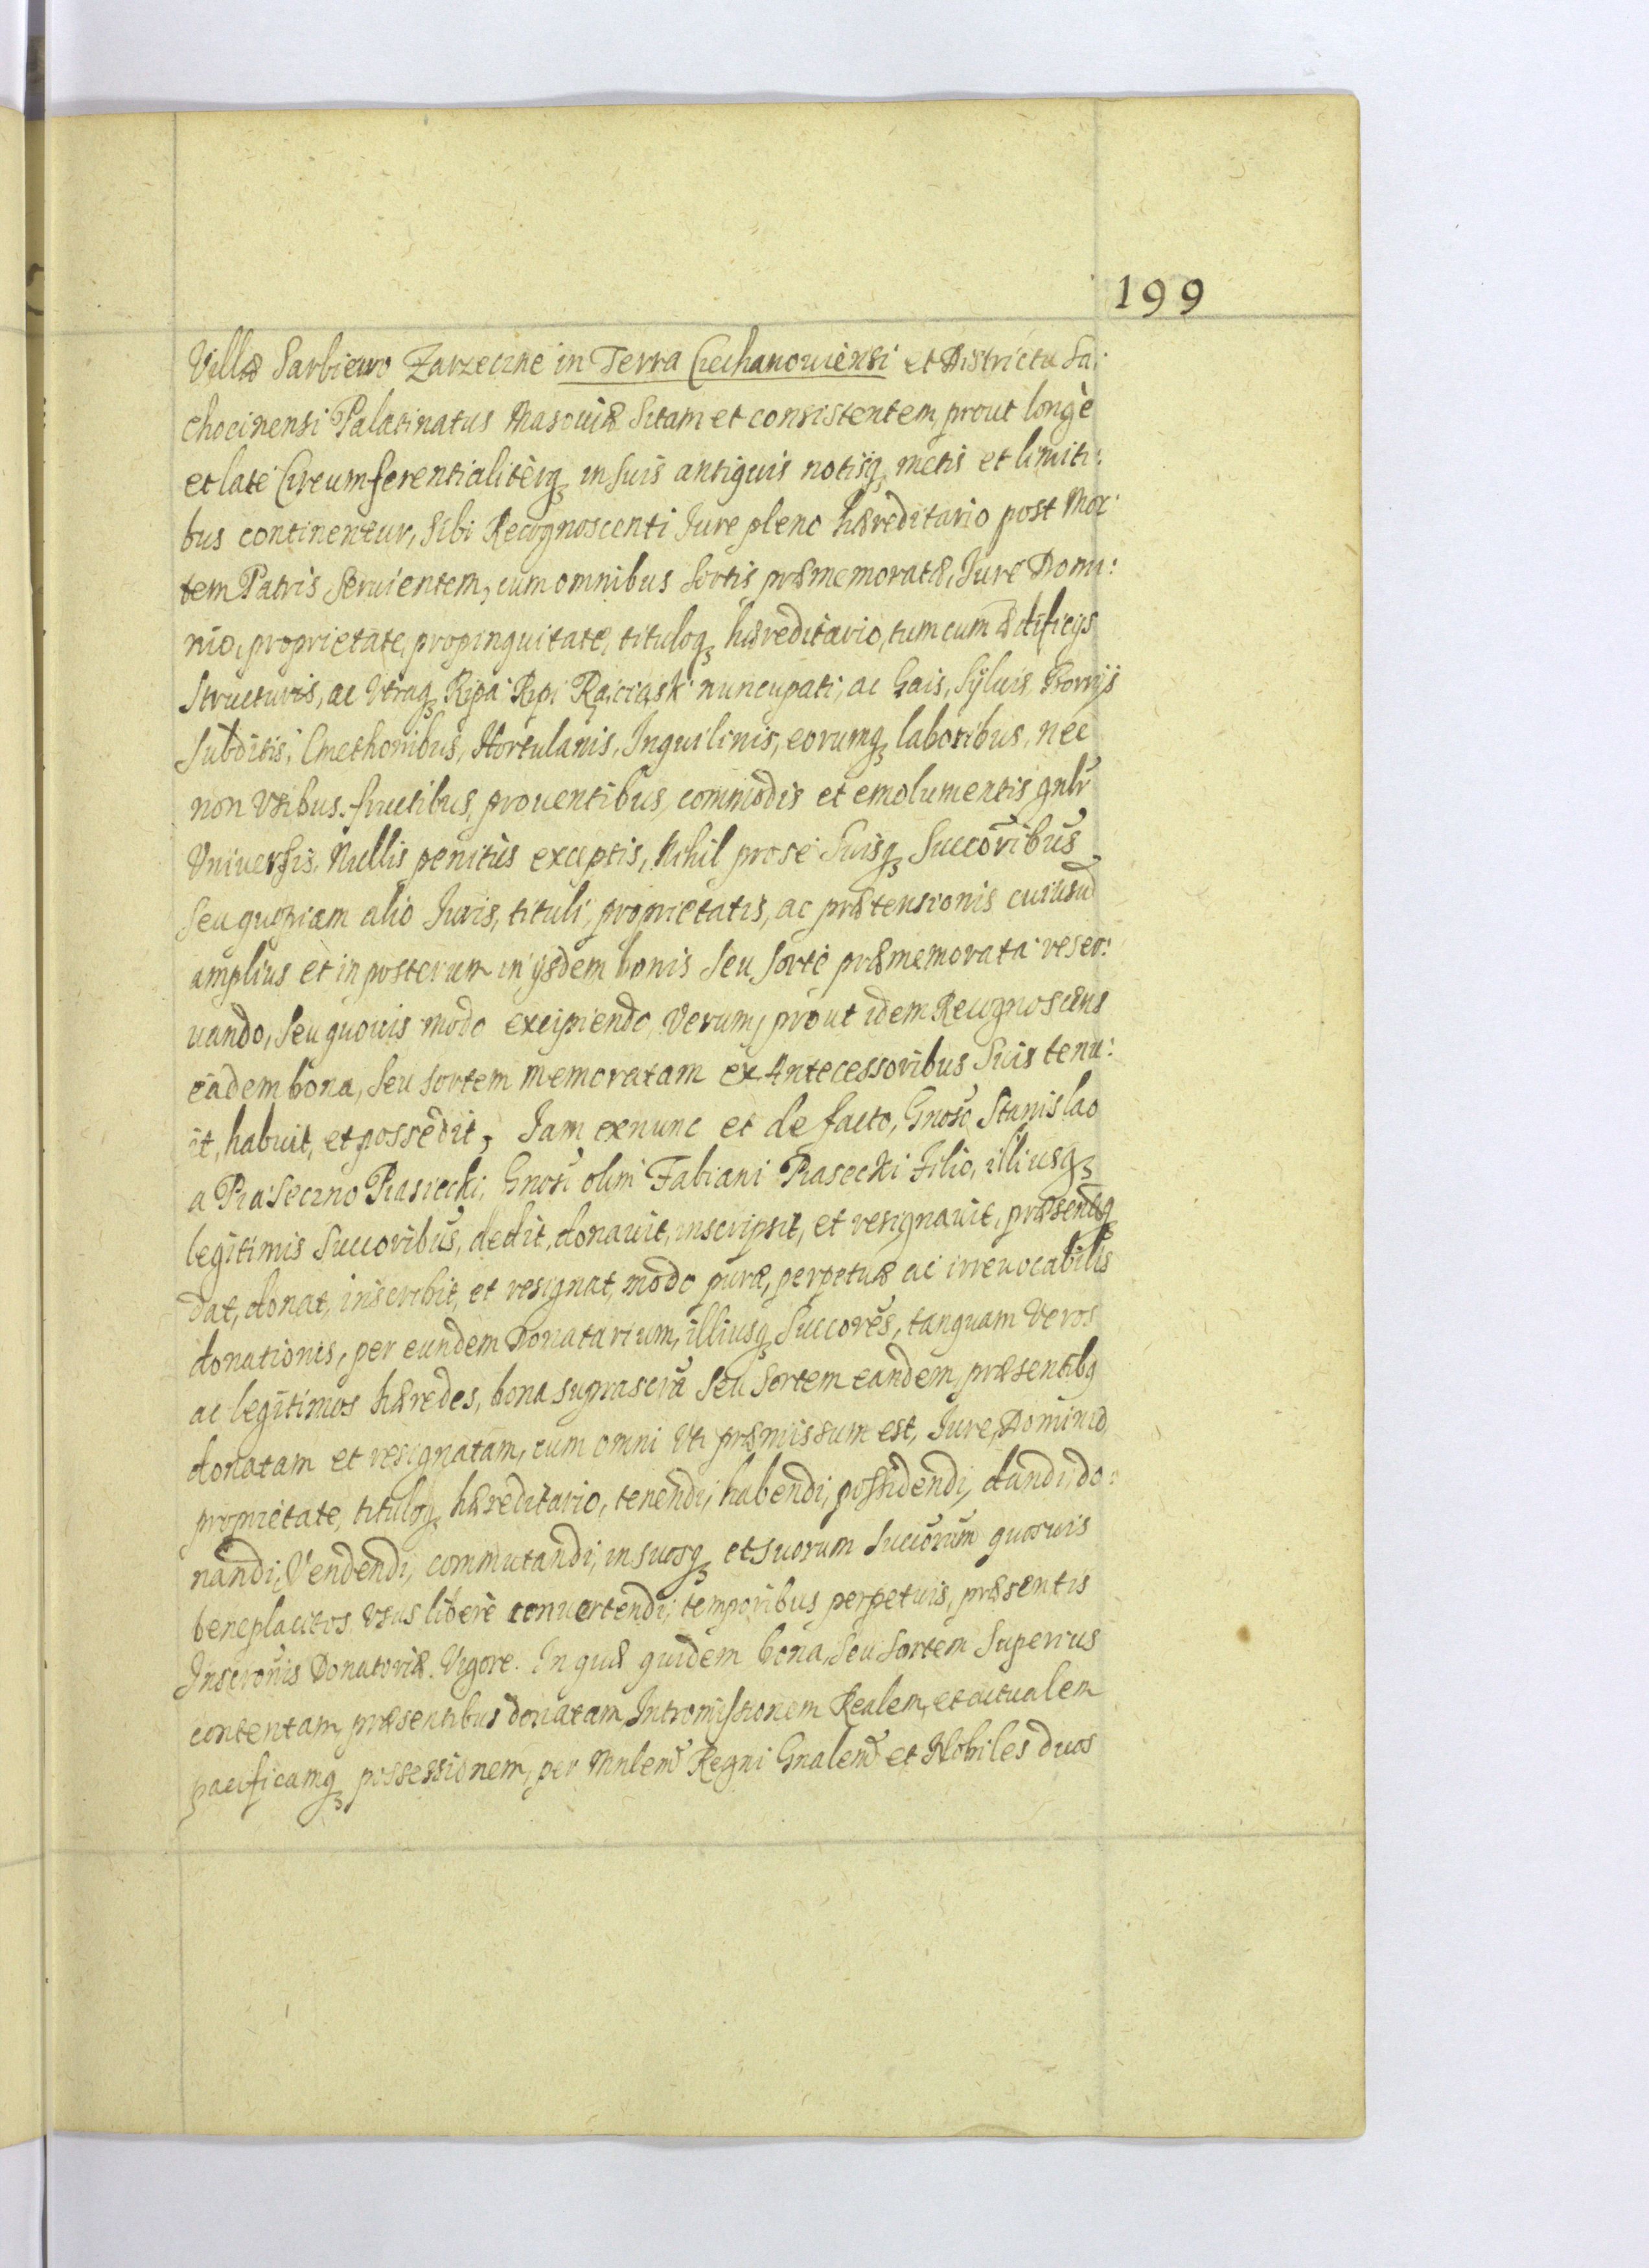 199
Villæ Sarbiewo Zarzeczne in Terra Ciechanouiensi et Districtu Sa:
chocinensi Palatinatus Masouiæ Sitam et consistentem, prout longè
et latè Circumferentialitèrq3 in suis antiquis notisq3 metis et limiti:
bus continentur, Sibi Recognoscenti Iure pleno hæreditario post Mor:
tem Patris seruientem, cum omnibus Sortis præmemoratæ, Iure Domi:
nio, proprietate, propinquitate, tituloq3 hæreditario, tum cum ædificijs
Structuris, ac Vtraq3 Ripa Rpi Raciąsk nuncupati, ac Gais, Syluis, Borrijs
Subditis, Cmethonibus, Hortulanis, Inquilinis, eorumq3 laboribus, nec
non Vsibus. fructibus, prouentibus, commodis et emolumentis gnlr
Vniuersis. Nullis penitùs exceptis, Nihil pro se Suisq3 Succoribus
Seu quopiam alio Iuris, tituli, proprietatis, ac prætensionis cuiusud
amplius et in posterum in ijsdem bonis Seu Sorte præmemorata reser:
uando, Seu quouis modo excipiendo, Verum, prout idem Recognoscens
eadem bona, Seu Sortem memoratam ex Antecessoribus Suis tenu:
it, habuit, et possedit, Iam ex nunc et de facto, Gnoso Stanislao
a Piaseczno Piasiecki, Gnosi olim Fabiani Piasecki Filio, illiusq3
legitimis Succoribus, dedit, donauit, inscripsit, et resignauit, præsentibq
dat, donat, inscribit, et resignat, modo puræ, perpetuæ ac irreuocabilis
donationis, per eundem Donatarium, illiusq3 Succores, tanquam Veros
ac legitimos hæredes, bona suprascra Seu Sortem eandem, præsentibq
donatam et resignatam, cum omni Vti præmissum est, Iure, Dominio,
proprietate, tituloq3 hæreditario, tenendi, habendi, possidendi, dandi, do:
nandi, Vendendi, commutandi, in suosq3 et suorum Succorum quosuis
beneplacitos Vsus liberè conuertendi, temporibus perpetuis, præsentis
Inscronis Donatoriæ. Vigore. In quæ quidem bona, Seu Sortem Superius
contentam, præsentibus donatam, Intromissionem Realem, et actualem
pacificamq3 possessionem, per Mnlem Regni Gnalem et Nobiles duos